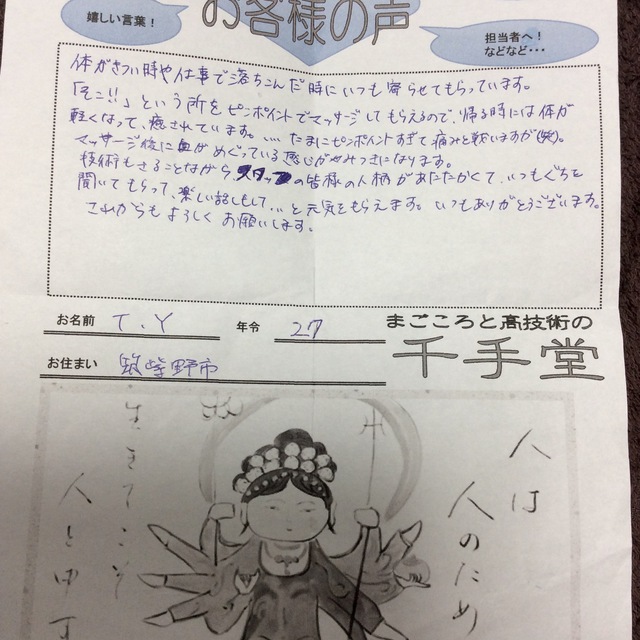 嬉しい言葉！
お客様の声
担当者へ！
などなど・・・
体がきつい時や仕事で落ちこんだ時にいつも寄らせてもらっています。
「そこ!!」という所をピンポイントでマッサージしてもらえるので、帰る時には体が
軽くなって、癒されています。... たまにピンポイントすぎて痛みと戦いますが(笑)。
マッサージ後に血がめぐっている感じがやみつきになります。
技術もさることながらスタッフの皆様の人柄があたたかくて、いつもぐちを
聞いてもらって、楽しい話しもして... と元気をもらえます。いつもありがとうございます。
これからもよろしくお願いします。
お名前 T.Y 年令 27
まごころと高技術の
千手堂
お住まい 筑紫野市
人は
人のため
生きてこそ
人と申